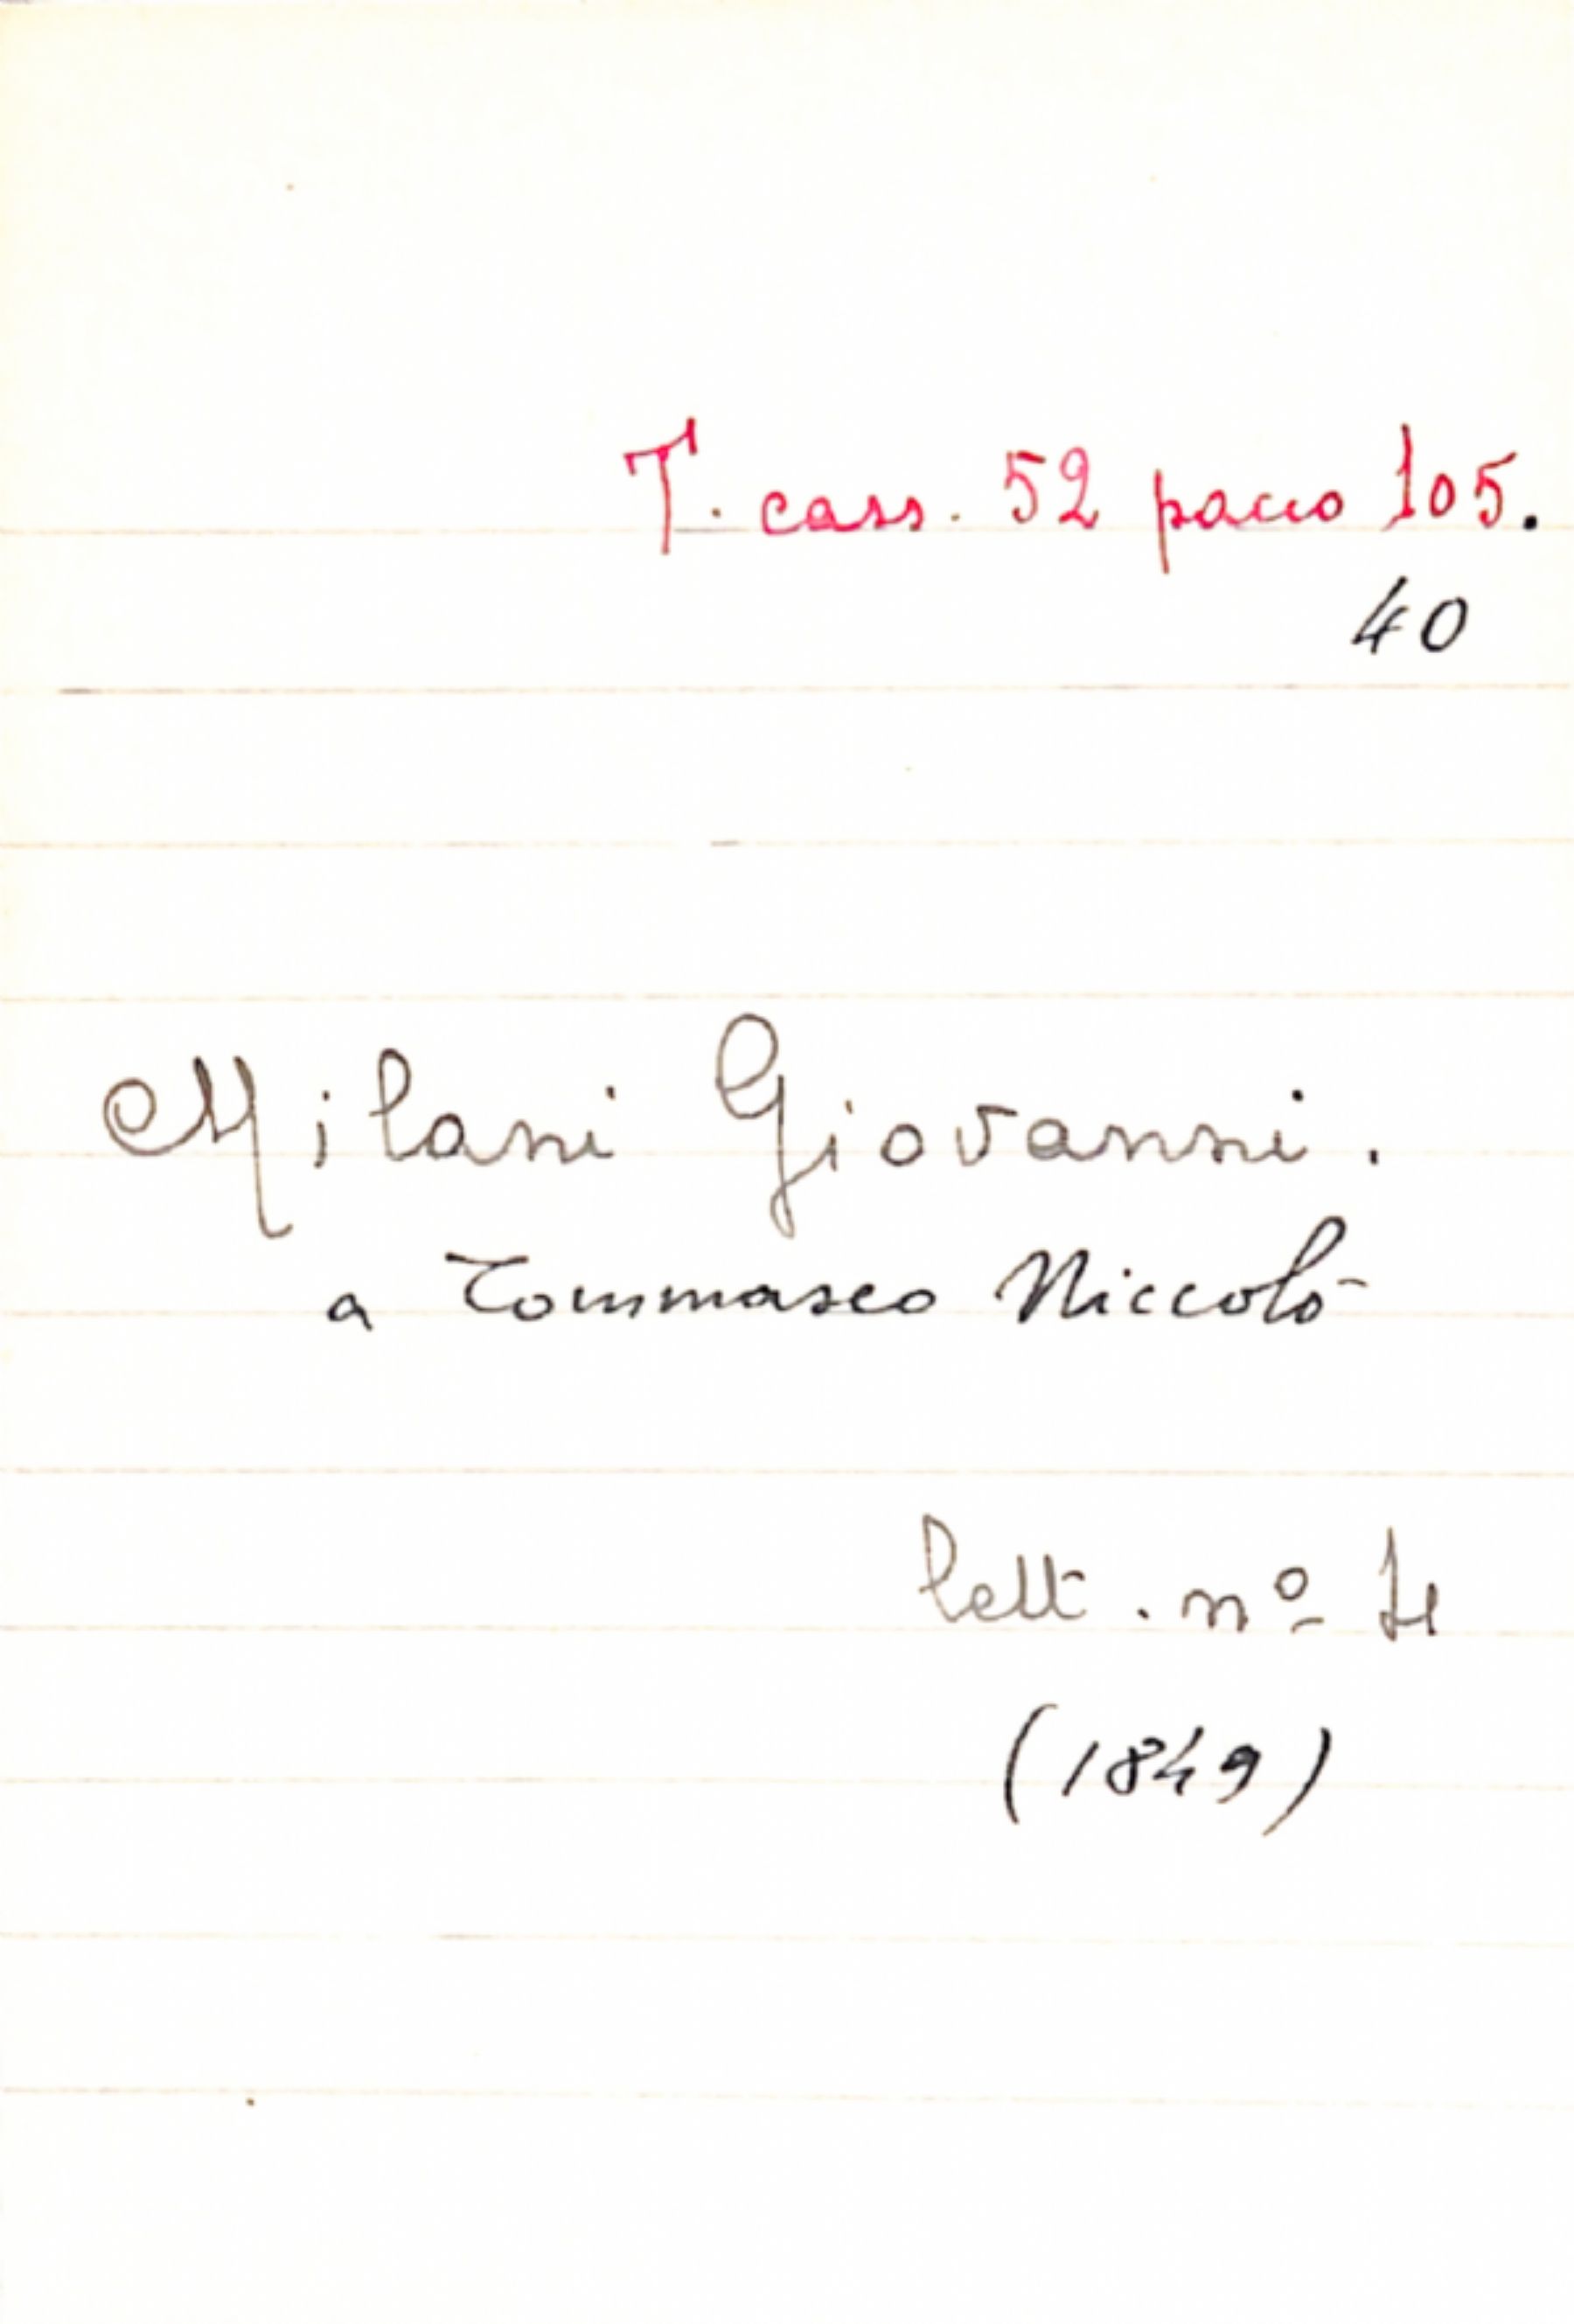 T. cass. 52 pacco 105.
40
Milani Giovanni.
a Tommaseo Niccolò
lett. nº 4
(1849)